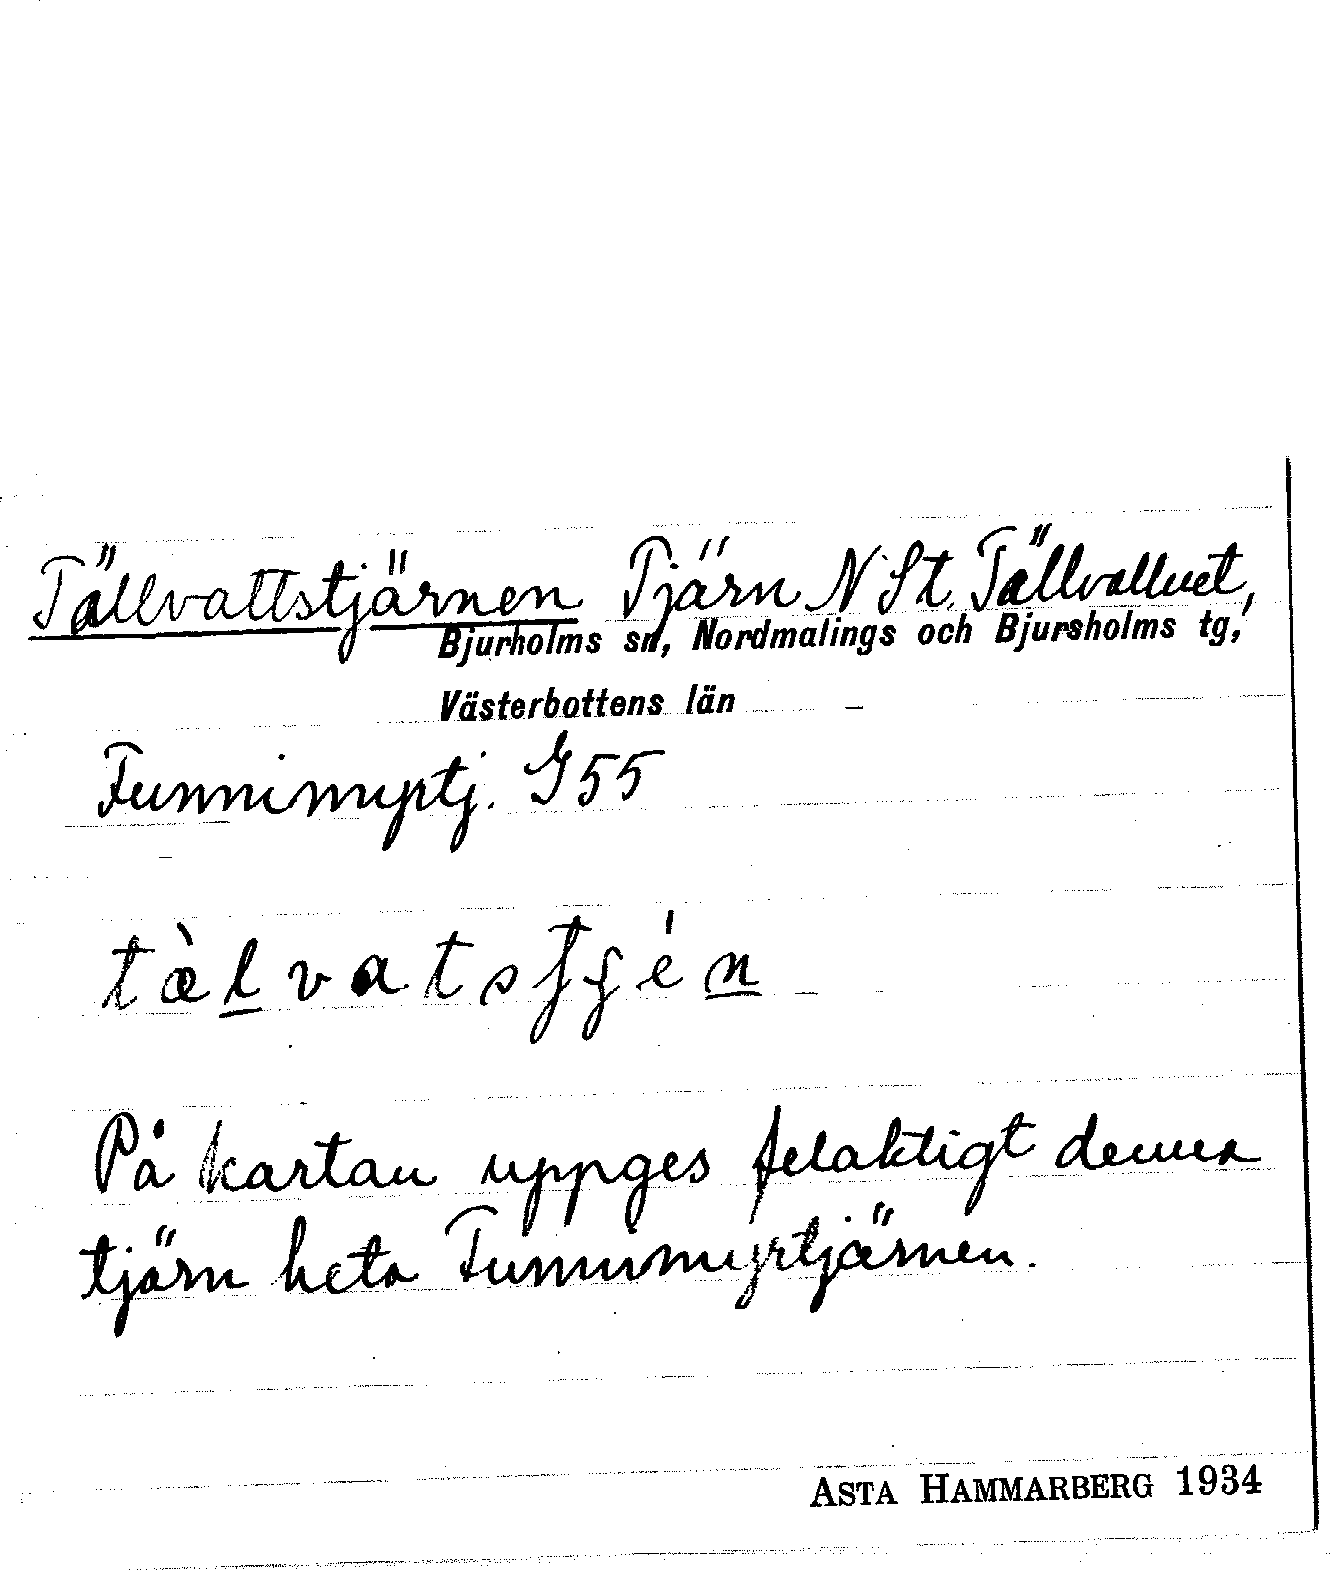 Tällvattstjärnen Tjärn N St. Tällvattnet,
Bjurholms sn, Nordmalings och Bjursholms tg,
Västerbottens län
Tunnimyrtj. G 55
På kartan uppges felaktigt denna
tjärn heta Tunnimyrtjärnen.
ASTA HAMMARBERG 1934